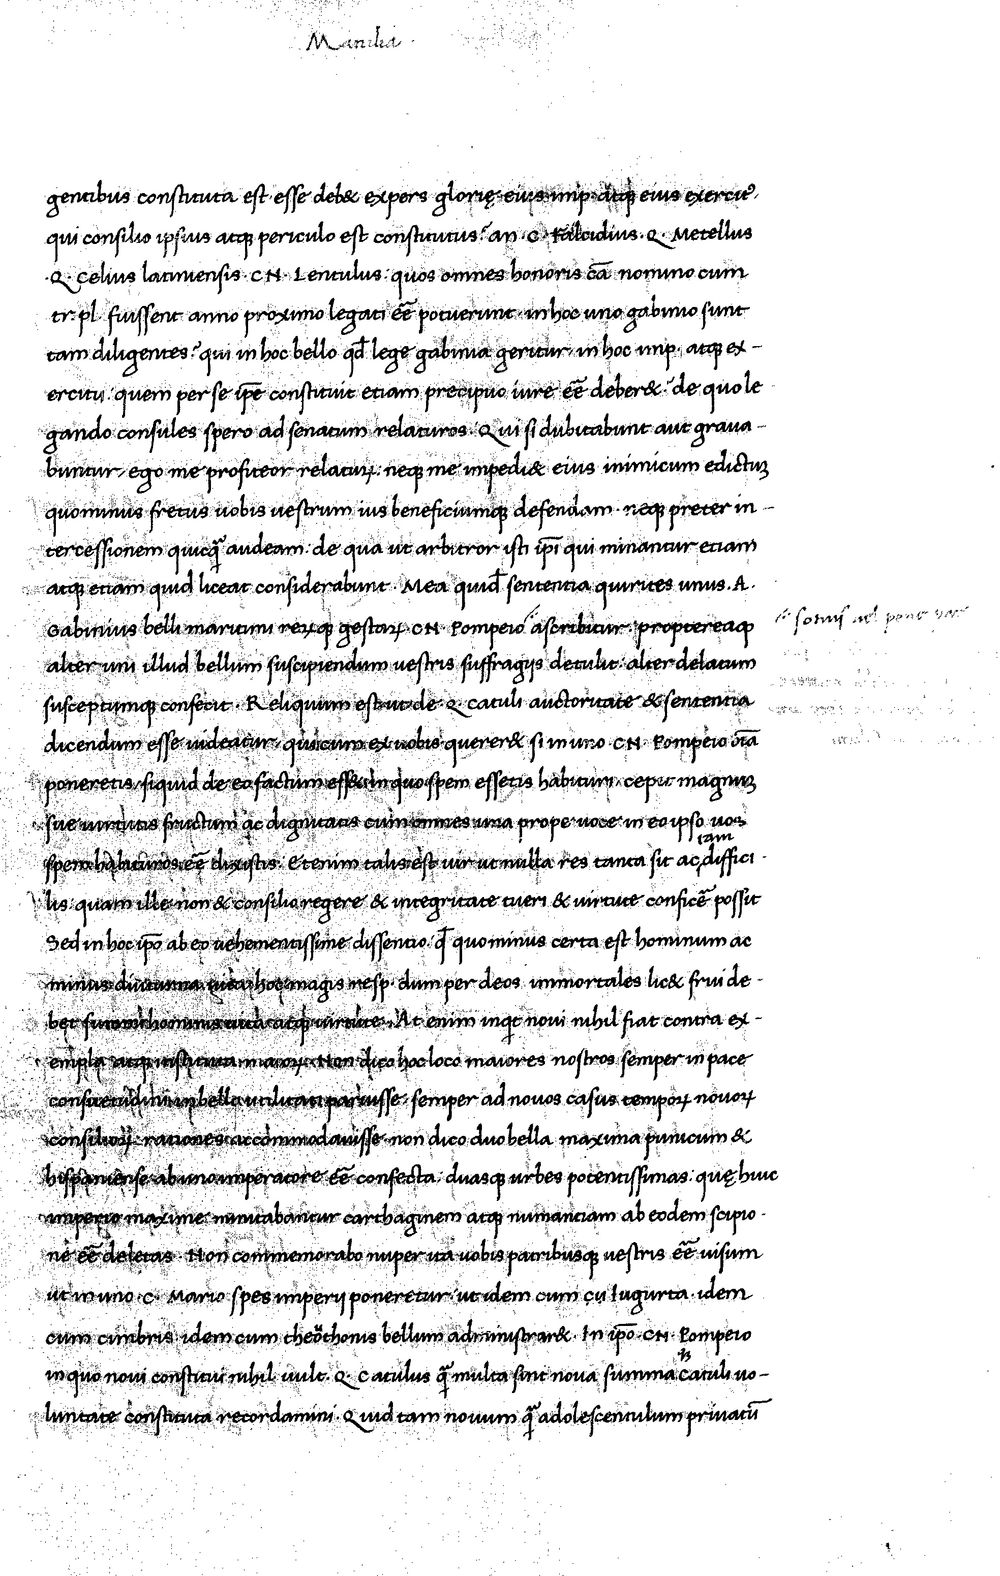 Manilia
gentibus constituta est esse deb& expers glorię eius imp. atqꝫ eius exercit᷒,
qui consilio ipsius atqꝫ periculo est constitutus? an. C. Falcidius. Q. Metellus
.Q. Celius latiniensis. CN. Lentulus. quos omnes honoris cā nomino cum
tr. pl. fuissent anno proximo legati eē potuerunt. in hoc uno gabinio sunt
tam diligentes? qui in hoc bello qd̄ lege gabinia geritur. in hoc imp. atqꝫ ex-
ercitu. quem per se ip̄e constituit etiam precipuo iure eē deber&? de quo le
gando consules spero ad senatum relaturos. Qui si dubitabunt aut graua-
buntur. ego me profiteor relaturꝝ. neqꝫ me impedi& eius inimicum edictuꝫ
quominus fretus uobis uestrum ius beneficiumqꝫ defendam. neqꝫ preter in-
tercessionem quicqꝗ̄ audeam. de qua ut arbitror isti ip̄i qui minantur etiam
atqꝫ etiam quid liceat considerabunt. Mea quid̄ sententia quirites unus. A.
Gabinius belli maritimi rerꝝqꝫ gestarꝝ CN. Pompeio ascribitur. propterea qꝫ
alter uni illud bellum suscipiendum uestris suffragijs detulit. alter delatum
susceptumqꝫ confecit. Reliquum est ut de. Q. catuli auctoritate & sententia
dicendum esse uideatur. qui cum ex uobis querer& si in uno CN. Pompeio oīa
poneretis. siquid de eo factum esset in quo spem essetis habituri. cepit magnuꝫ
sue uirtutis fructum ac dignitatis cum omnes una prope uoce in eo ipso uos
spem habituros eē dixistis. Etenim talis est uir ut nulla res tanta sit ac tam diffici-
lis. quam ille non & consilio regere & integritate tueri & uirtute conficē possit
Sed in hoc ip̄o ab eo uehementissime dissentio. q̄ quominus certa est hominum ac
minus diuturna uita hoc magis resp. dum per deos immortales lic& frui de-
bet summi hominis uita atqꝫ uirtute. At enim inqt noui nihil fiat contra ex-
empla atqꝫ instituta maiorꝝ. Non dico hoc loco maiores nostros semper in pace
consuetudini in bello utilitati paruisse. semper ad nouos casus temporꝝ nouorꝝ
consiliorꝝ rationes accommodauisse. non dico duo bella maxima punicum &
hispaniense ab uno imperatore eē confecta. duasqꝫ urbes potentissimas. quę huic
imperio maxime minitabantur carthaginem atqꝫ numantiam ab eodem scipio-
ne eē deletas. Non commemorabo nuper ita uobis patribusqꝫ uestris eē uisum
ut in uno. C. Mario spes imperij poneretur. ut idem cum cū Iugurta. idem
cum cimbris. idem cum theothonis bellum administrar&. In ip̄o. CN. Pompeio
in quo noui constitui nihil uult. Q. Catulus qꝗ̄ multa sint noua summa catuli uo-
luntate constituta recordamini. Quid tam nouum qꝗ̄ adolescentulum priuatū